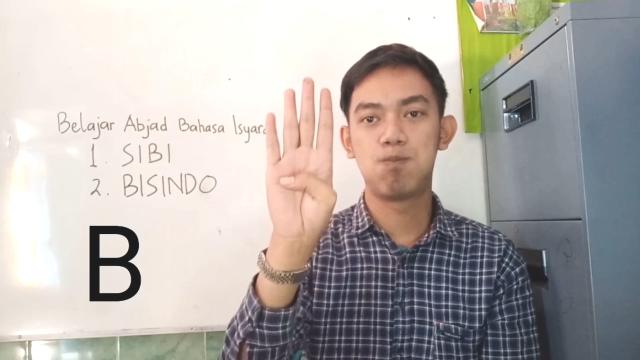 Belajar Abjad Bahasa Isyara
1. SIBI
2. BISINDO
B